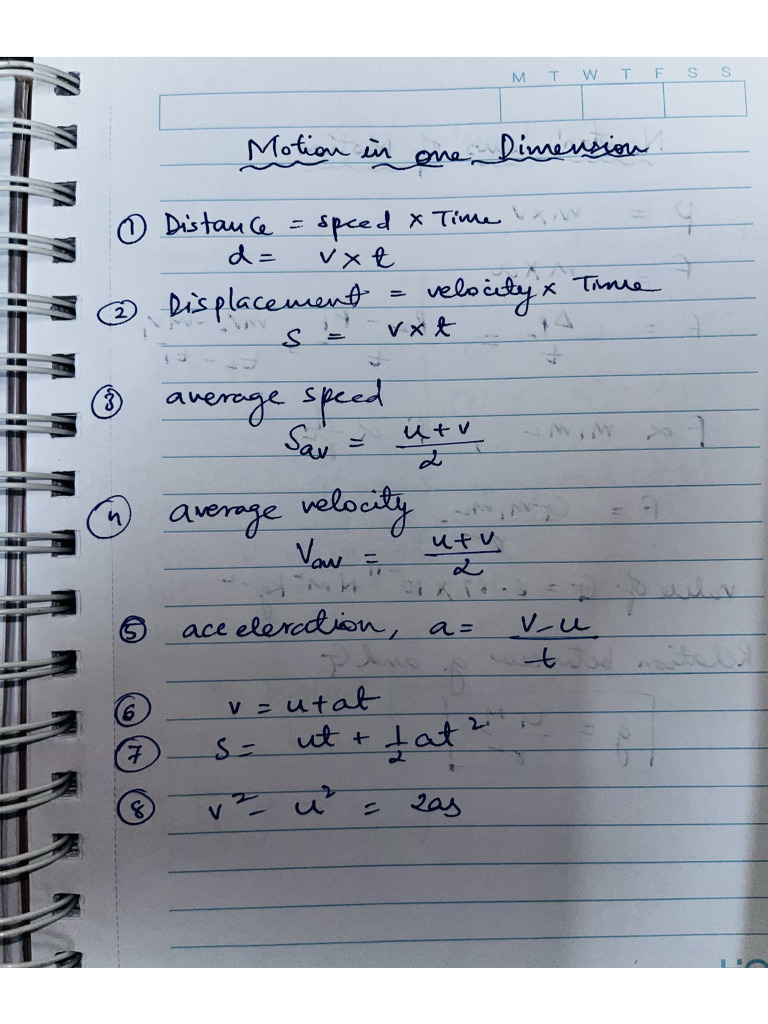 M T W T F S S
Motion in one Dimension
① Distance = speed × Time
d = v × t
② Displacement = velocity × Time
s = v × t
③ average speed
Sav = u + v / 2
④ average velocity
Vav = u + v / 2
⑤ acceleration, a = v - u / t
⑥ v = u + at
⑦ s = ut + 1/2 at²
⑧ v² - u² = 2as